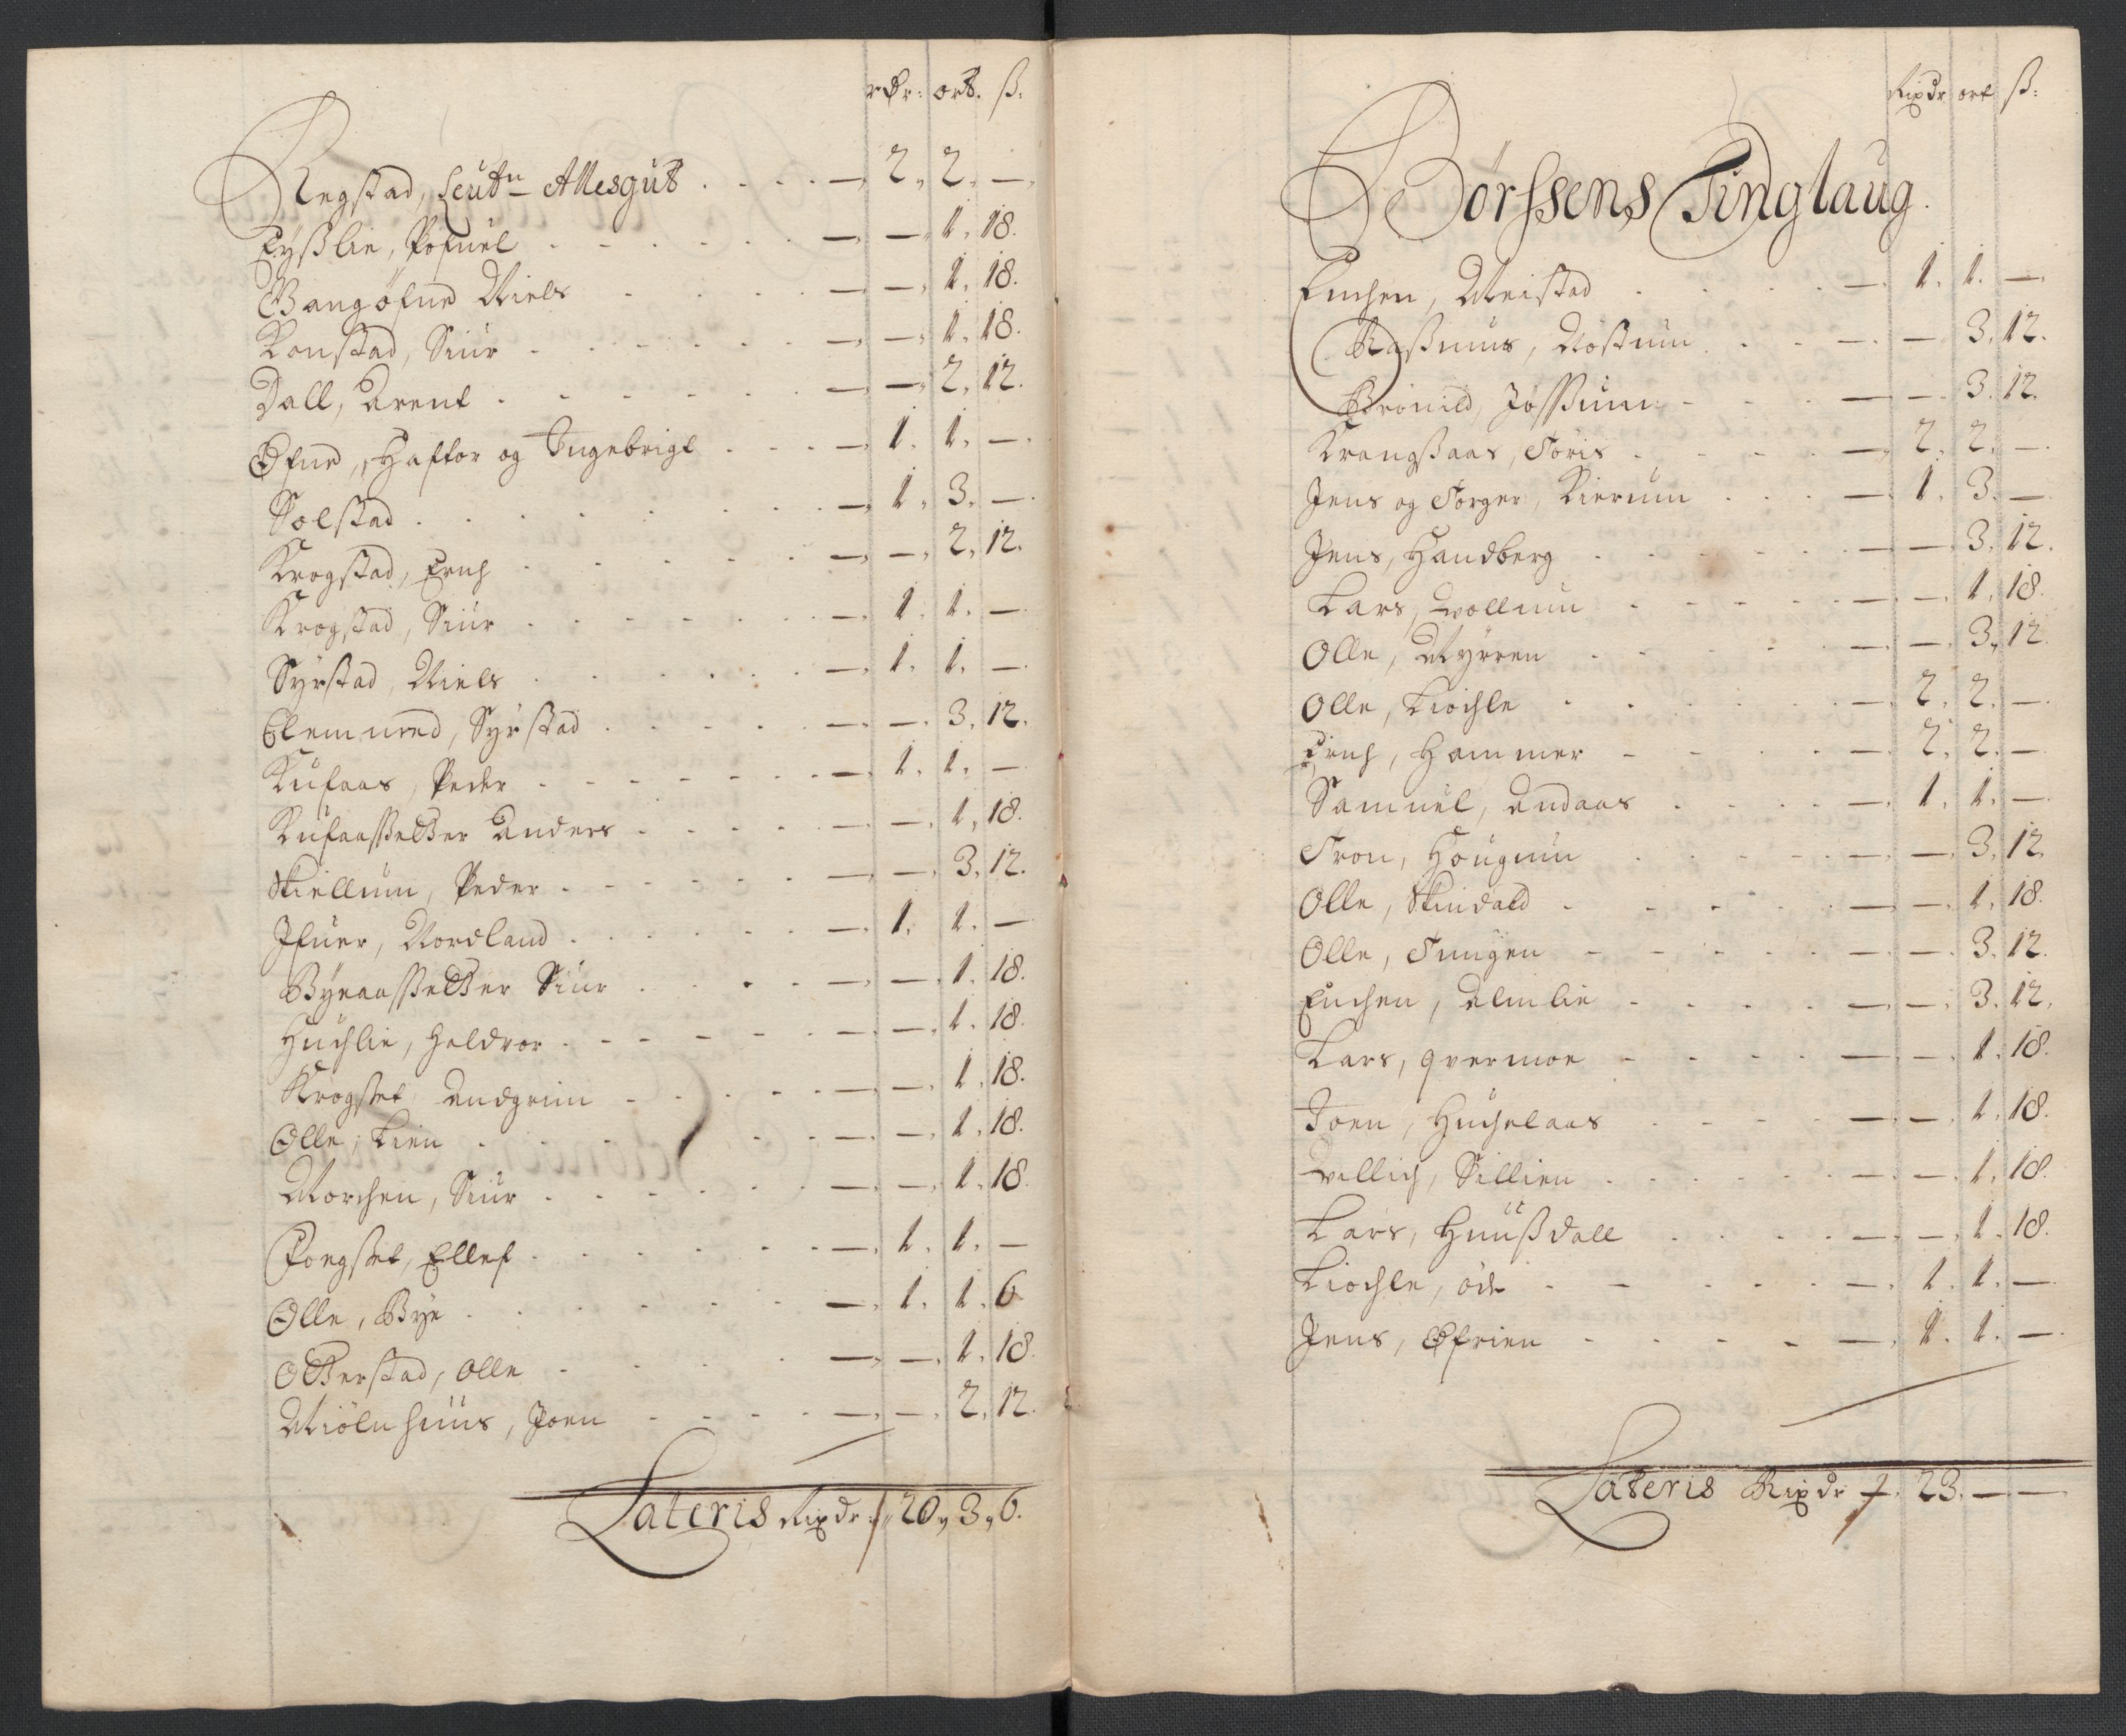 rdr: ort. ß:
Regstad, Leutn Allesgut . . . . — 2, 2, —,
Eyßlie, Pofuel . . . . . . —, —, 1, 18.
Bangøfne Niels . . . . —, —, 1, 18.
Konstad, Siur . . . . . . —, —, 1, 18.
Dall, Arent . . . . . . —, —, 2, 12.
Øfne, Haftor og Ingebrigt . . . —, 1. 1. —.
Solstad . . . . . . . . —, 1, 3. —.
Krogstad, Erich . . . . . . —, —, 2, 12.
Krogstad, Siur . . . . . . . —, 1. 1. —.
Syrstad, Niels . . . . . . —, 1. 1. —.
Clemmed, Syrstad . . . . . —, —. 3, 12.
Kufaas, Peder . . . . . . . —, 1. 1. —
Kufaassetter Anders . . . . . —, —. 1, 18.
Skiellum, Peder . . . . . . —, —. 3, 12.
Ifuer, Nordland . . . . . . —. 1. 1. —
Byenaassetter Siur . . . . —, —, 1. 18.
Huchlie, Haldvor . . . . . . —, —, 1. 18.
Krogstet Andgrim . . . . . —, —. 1, 18.
Olle, Lien . . . . . . . —, —, 1, 18.
Morchen, Siur . . . . . . —, —, 1. 18.
Foegstet, Ellef . . . . . . . —, 1. 1. —
Olle, Bye . . . . . . . —, 1. 1. 6
Otterstad, Olle . . . . . —, —, 1. 18.
Miølnhuus, Joen . . . . . —, —, 2, 12.
Lateris Rixdr 20, 3, 6.
Rixdr ort ß:
Børssens Tinglaug.
Enchen, Meistad . . . . . —. 1. 1. —.
Rasmus, Nøstum . . . . —. —. 3. 12.
Brønild, Jøssum . . . . —, —. 3. 12.
Krangsaas, Tøris . . . . . —, 2. 2. —.
Jens og Torger, Kierum . . . —. 1. 3. —
Jens, Handberg . . . . . . —. —. 3. 12.
Lars, Wollum . . . . . . —. —. 1. 18.
Olle, Myrren . . . . . . —. —. 3. 12
Olle, Kiochle . . . . . . . —. 2. 2. —.
Erich, Hammer . . . . . —. 2. 2. —
Samuel, Andaas . . . . . —. 1. 1. —
Tron, Hougum . . . . . —, —. 3. 12.
Olle, Skindald . . . . . . —. —. 1. 18.
Olle, Tungen . . . . . . —. —. 3. 12.
Enchen, Almlie . . . . . —. —. 3. 12.
Lars, Qvermoe . . . . . —. —. 1. 18.
Joen, Huchelaas . . . . . —. —. 1. 18.
Wellich, Sillien . . . . . . —. —. 1. 18.
Lars, Huußdall . . . . . —. —. 1. 18.
Kiochle, øde . . . . . . —. 1. 1. —.
Jens, Øfrien . . . . . —. 1. 1. —.
Lateris Rixdr 23. — —